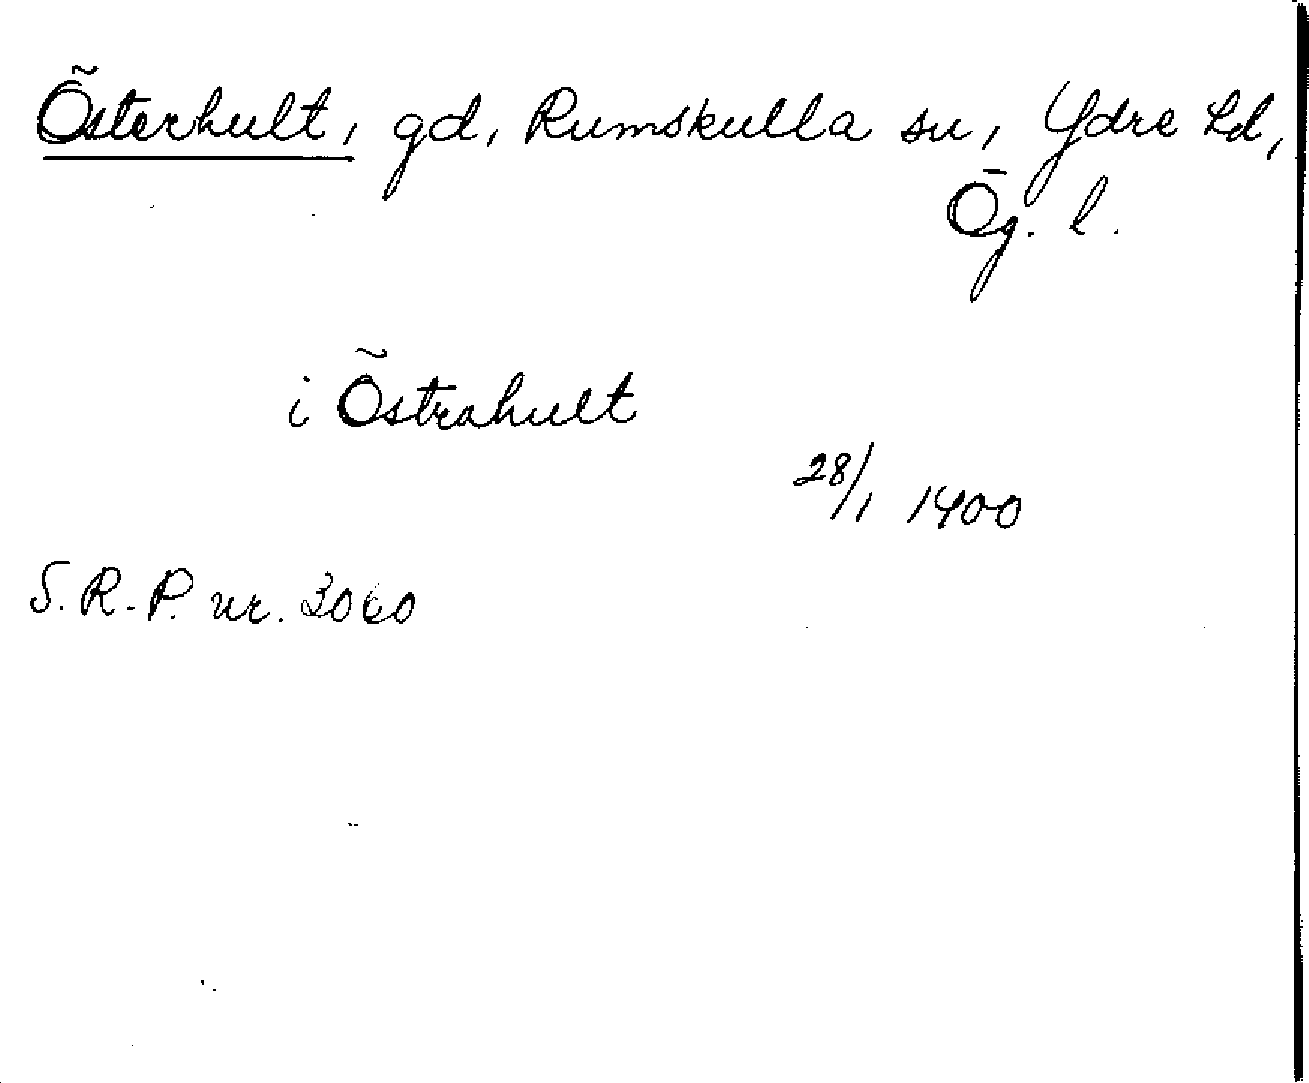 Österhult, gd, Rumskulla sn, Ydre hd,
Ög. l.
i Östrahult
28/1 1400
S.R.P. nr. 3060